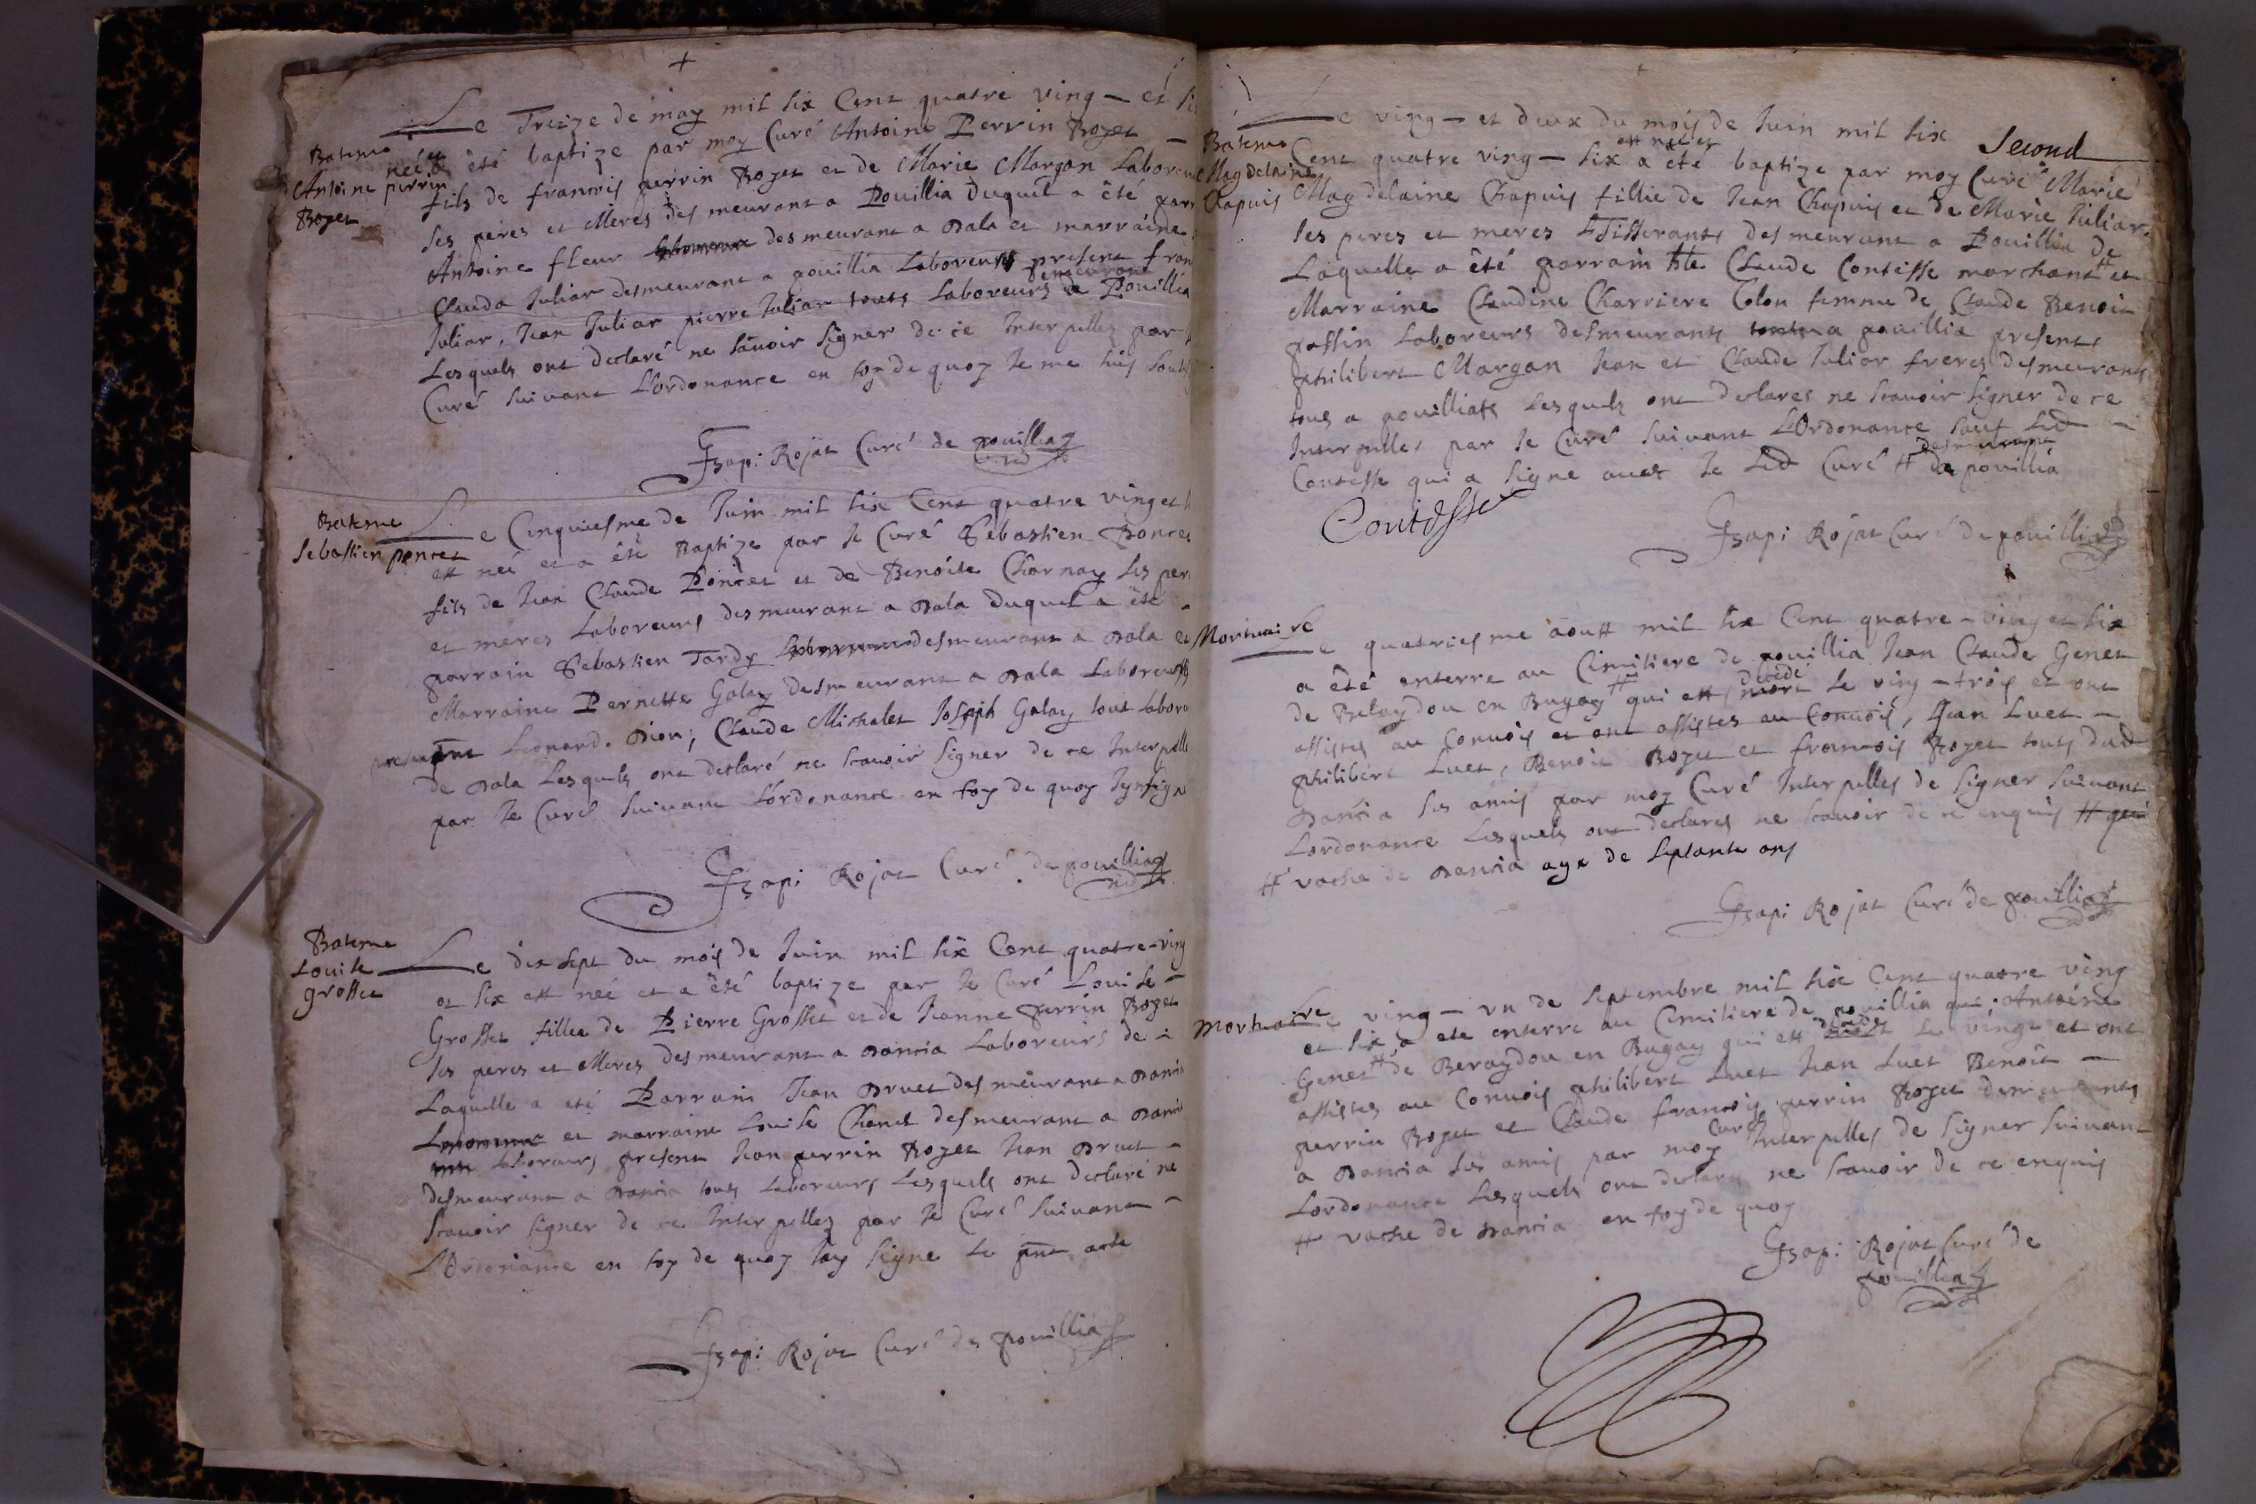 Le Treize de may mil six Cent quatre ving – et si
Bateme
Antoine perrin
Boget
neé et a été baptize par moy Curé Antoine Perrin Boget –
fils de francois perrin Boget et de Marie Margan Laboreur
ses peres et Meres desmeurant a Pouillia duquel a été parr
Antoine fleur desmeurant a Dala et marraine
Clauda Juliar desmeurant a pouillia Laboreurs present fran
Juliar, Jean Juliar pierre Juliar touts Laboreurs demeurant a Pouillia
Lesquels ont declaré ne savoir signer de ce Interpellez par
Curé suivant L'ordonance en foy de quoy Je me suis sous
Rojat Curé de pouillia
Bateme
Sebastien poncet
Le Cinquiesme de Juin mil six Cent quatre vinget
est neé et a été Baptize par le Curé Sebastien Poncet
fils de Jean Claude Poncet et de Benoite Charnay ses per
et meres Laboreurs desmeurant a Dala Duquel a été –
parrain Sebastien Tardy desmeurant a Dala et
Marraine Pernette Galay desmeurant a Dala Laboreurs
present Leonard Dion; Claude Michalet Joseph Galay tout labore
de Dala Lesquels ont declaré ne scavoir signer de ce Interpelle
par le Curé suivant L'ordonance en foy de quoy Jy signe
Rojat Curé de pouillia
Bateme
Louise
grosset
Le dix sept du mois de Juin mil six Cent quatre-ving
et six est neé et a été baptize par le Curé Louise –
Grosset fillie de Pierre Grosset et de Jeanne perrin Boget
ses peres et Meres desmeurant a Dancia Laboreurs de –
Laquelle a eté Parrain Jean Druet desmeurant a Danci
et marraine Louise Chanel desmeurant a Danci
laboreurs present Jean perrin Boget Jean Druet –
desmeurant a Dancia tous Laboreurs Lesquels ont declaré ne
scavoir signer de ce Interpellez par le Curé suivant –
L'Ordonance en foy de quoy Jay signe le pnt acte
Rojat Curé de pouillia
Second
Bateme
Magdelaine
Chapuis
Le ving – et deux du mois de Juin mil six
Cent quatre ving – six est neé et a été baptize par moy Curé Marie
Magdelaine Chapuis fillie de Jean Chapuis et de Marie Juliar
ses peres et meres Tisserants desmeurant a Pouillia de
Laquelle a été parrain hte Claude Contesse marchant et
Marraine Claudine Charriere Colon femme de Claude Benoit
passin Laboreurs desmeurants a pouillia present
philibert Margan Jean et Claude Juliar freres desmeurants
tous a pouilliats Lesquels ont declares ne scavoir signer de ce
Interpelles par le Curé suivant L'Ordonance sauf led –
Contesse qui a signe avec le led Curé # desmeurant de pouillia
Contesse
Rojat Curé de pouillia
Mortuaire
Le quatriesme aoust mil six Cent quatre – ving et six
a été enterre au Cimitiere de pouillia Jean Claude Genet
de Belaydou en Bugay # qui est decedé le ving – trois et ont
assistes au Convois et ont assistes au Convois, Jean Luet –
philibert Luet, Benoit Boget et francois Boget touts dud
Dancia ses amis par moy Curé Interpelles de signer suivant
Lordonance Lesquels ont declares ne scavoir de ce enquis # qui
# vache de Dancia age de septante ans
Rojat Curé de pouillia
Mortuaire
Le ving – un de Septembre mil six Cent quatre ving
et six a eté enterre au Cimitiere de pouillia Antoine
Genet # de Beraydou en Bugay qui est decede le vingt et ont
assistes au Convois philibert Luet Jean Luet Benoit –
perrin Boget et Claude francois perrin Boget demeurants
a Dancia ses amis par moy Curé Interpelles de signer suivant
Lordonance Lesquels ont declare ne scavoir de ce enquis
# vache de Dancia en foy de quoy
Rojat Curé de
pouillia